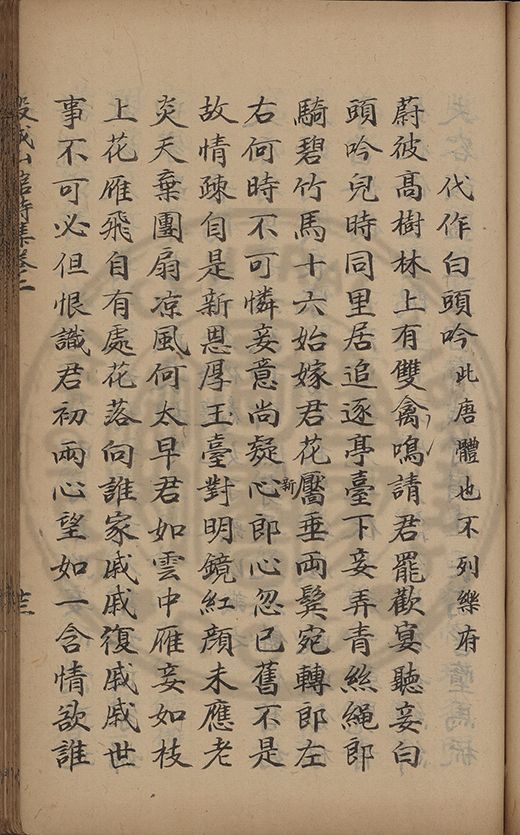 代作白頭吟此唐體也不列樂府
蔚彼高樹林上有雙禽鳴請君罷歡宴聽妾白
頭吟兒時同里居追逐亭臺下妾弄青絲繩郎
騎碧竹馬十六始嫁君花靨垂兩鬓宛轉郎左
右何時不可憐妾意尚疑新心郎心忽已舊不是
故情疎自是新恩厚玉臺對明鏡紅顏未應老
炎天棄團扇凉風何太早君如雲中雁妾如枝
上花雁飛自有處花落向誰家戚戚復戚戚世
事不可必但恨識君初兩心望如一含情欲誰
山館詩集卷二
廿三